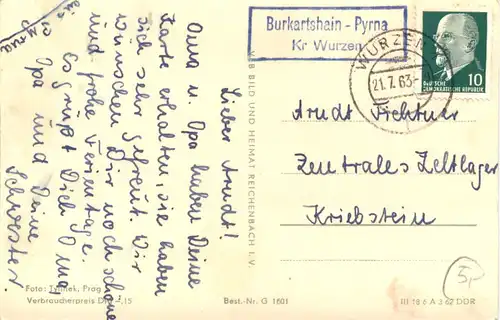 Burkartshain - Pyrna
Kr Wurzen
WURZEN
21.7.63
DEUTSCHE
DEMOKRATISCHE REPUBLIK
10
Arndt Fichtner
Zentrales Zeltlager
Kriebstein
Lieber Arndt!
Oma u. Opa haben Deine
Karte erhalten, sie haben
sich sehr gefreut. Wir
wünschen Dir noch schöne
und frohe Ferientage.
Es grüßt Dich Oma
Opa und Deine
Schwester
VEB BILD UND HEIMAT REICHENBACH I. V.
Foto: Tymnek, Prag
Verbraucherpreis DM -,15
Best.-Nr. G 1601
III 18 6 A 3 62 DDR
5,-